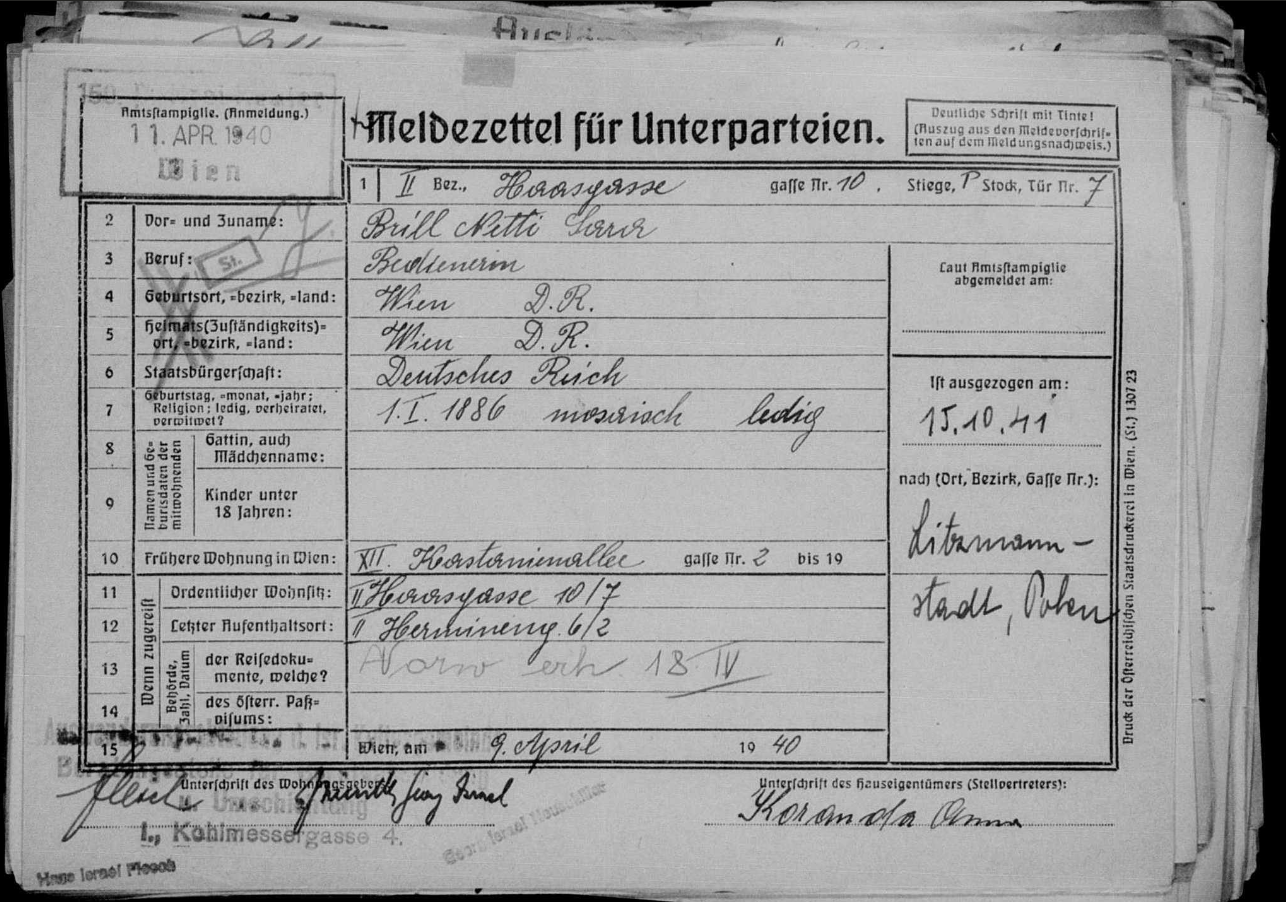 Amtsstampiglie. (Anmeldung.)
11. APR. 1940
Wien
Meldezettel für Unterparteien.
Deutliche Schrift mit Tinte!
(Auszug aus den Meldevorschrif-
ten auf dem Meldungsnachweis.)
1 II Bez., Haasgasse gasse Nr. 10. Stiege, P Stock, Tür Nr. 7
2 Vor- und Zuname: Brill Netti Sara
3 Beruf: Bedienerin
St.
4 Geburtsort, -bezirk, -land: Wien D.R.
5 Heimats(Zuständigkeits)-
ort, -bezirk, -land: Wien D.R.
6 Staatsbürgerschaft: Deutsches Reich
7 Geburtstag, -monat, -jahr;
Religion; ledig, verheiratet,
verwitwet? 1. I. 1886 mosaisch ledig
Namen und Ge-
burtsdaten der
mitwohnenden
8 Gattin, auch
Mädchenname:
9 Kinder unter
18 Jahren:
10 Frühere Wohnung in Wien: XII. Kastanienallee gasse Nr. 2 bis 19
Wenn zugereist
11 Ordentlicher Wohnsitz: II Haasgasse 10/7
12 Letzter Aufenthaltsort: II Hermineng. 6/2
Behörde,
Zahl, Datum
13 der Reisedoku-
mente, welche? 18 IV
14 des österr. Paß-
visums:
15 Wien, am 9. April 19 40
Laut Amtsstampiglie
abgemeldet am:
Ist ausgezogen am:
15.10.41
nach (Ort, Bezirk, Gasse Nr.):
Litzmann-
stadt, Polen
Druck der Österreichischen Staatsdruckerei in Wien. (St.) 1307 23
Unterschrift des Wohnungsgebers:
Unterschrift des Hauseigentümers (Stellvertreters):
Koranda Anna
Umschichtung
I., Kohlmessergasse 4.
Hans Israel Flesch